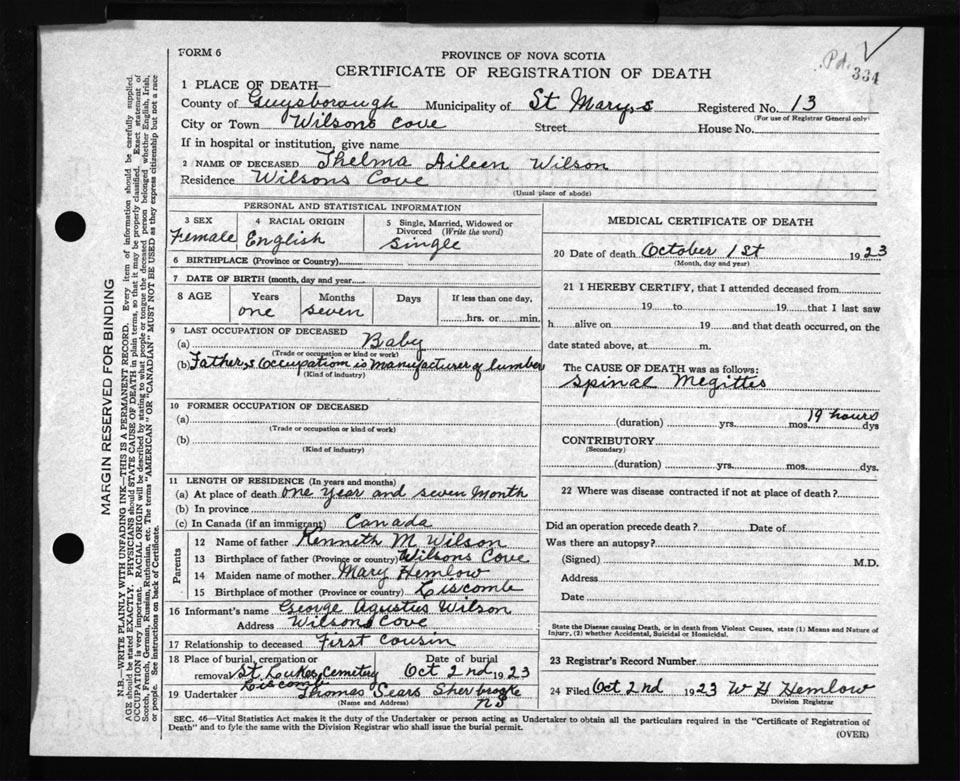 FORM 6
PROVINCE OF NOVA SCOTIA
Pd. 334
CERTIFICATE OF REGISTRATION OF DEATH
1 PLACE OF DEATH—
County of Guysborough Municipality of St Mary,s Registered No. 13
(For use of Registrar General only)
City or Town Wilsons Cove Street House No.
If in hospital or institution, give name
2 NAME OF DECEASED Thelma Aileen Wilson
Residence Wilsons Cove
(Usual place of abode)
PERSONAL AND STATISTICAL INFORMATION
3 SEX 4 RACIAL ORIGIN 5 Single, Married, Widowed or Divorced (Write the word)
Female English Single
6 BIRTHPLACE (Province or Country)
7 DATE OF BIRTH (month, day and year)
8 AGE Years Months Days If less than one day,
one seven hrs. or min.
9 LAST OCCUPATION OF DECEASED
(a) Baby
(Trade or occupation or kind or work)
(b) Father,s Occupation is manufacturer of lumber
(Kind of industry)
10 FORMER OCCUPATION OF DECEASED
(a)
(Trade or occupation or kind of work)
(b)
(Kind of industry)
11 LENGTH OF RESIDENCE (In years and months)
(a) At place of death one Year and seven Month
(b) In province
(c) In Canada (if an immigrant) Canada
Parents
12 Name of father Kenneth M Wilson
13 Birthplace of father (Province or country) Wilsons Cove
14 Maiden name of mother Mary Hemlow
15 Birthplace of mother (Province or country) Liscomb
16 Informant's name George Agustus Wilson
Address Wilsons Cove
17 Relationship to deceased First Cousin
18 Place of burial, cremation or removal St. Lukes Cemetery Liscomb Date of burial Oct 2nd 1923
19 Undertaker Thomas Sears Sherbrooke NS
(Name and Address)
MEDICAL CERTIFICATE OF DEATH
20 Date of death October 1st 1923
(Month, day and year)
21 I HEREBY CERTIFY, that I attended deceased from
19 to 19 that I last saw
h alive on 19 and that death occurred, on the
date stated above, at m.
The CAUSE OF DEATH was as follows:
Spinal Megittes
19 hours
(duration) yrs. mos. dys
CONTRIBUTORY
(Secondary)
(duration) yrs. mos. dys.
22 Where was disease contracted if not at place of death?
Did an operation precede death? Date of
Was there an autopsy?
(Signed) M.D.
Address
Date
State the Disease causing Death, or in death from Violent Causes, state (1) Means and Nature of
Injury, (2) whether Accidental, Suicidal or Homicidal.
23 Registrar's Record Number
24 Filed Oct 2nd 1923 W H Hemlow
Division Registrar
SEC. 46—Vital Statistics Act makes it the duty of the Undertaker or person acting as Undertaker to obtain all the particulars required in the "Certificate of Registration of
Death" and to fyle the same with the Division Registrar who shall issue the burial permit.
(OVER)
MARGIN RESERVED FOR BINDING
N.B.—WRITE PLAINLY WITH UNFADING INK—THIS IS A PERMANENT RECORD. Every item of information should be carefully supplied.
AGE should be stated EXACTLY. PHYSICIANS should STATE CAUSE OF DEATH in plain terms, so that it may be properly classified. Exact statement of
OCCUPATION is very important. RACIAL ORIGIN will be described by stating to what people or tongue the deceased person belonged whether English, Irish,
Scotch, French, German, Russian, Ruthenian, etc. The terms "AMERICAN" OR "CANADIAN" MUST NOT BE USED as they express citizenship but not a race
or people. See instructions on back of Certificate.